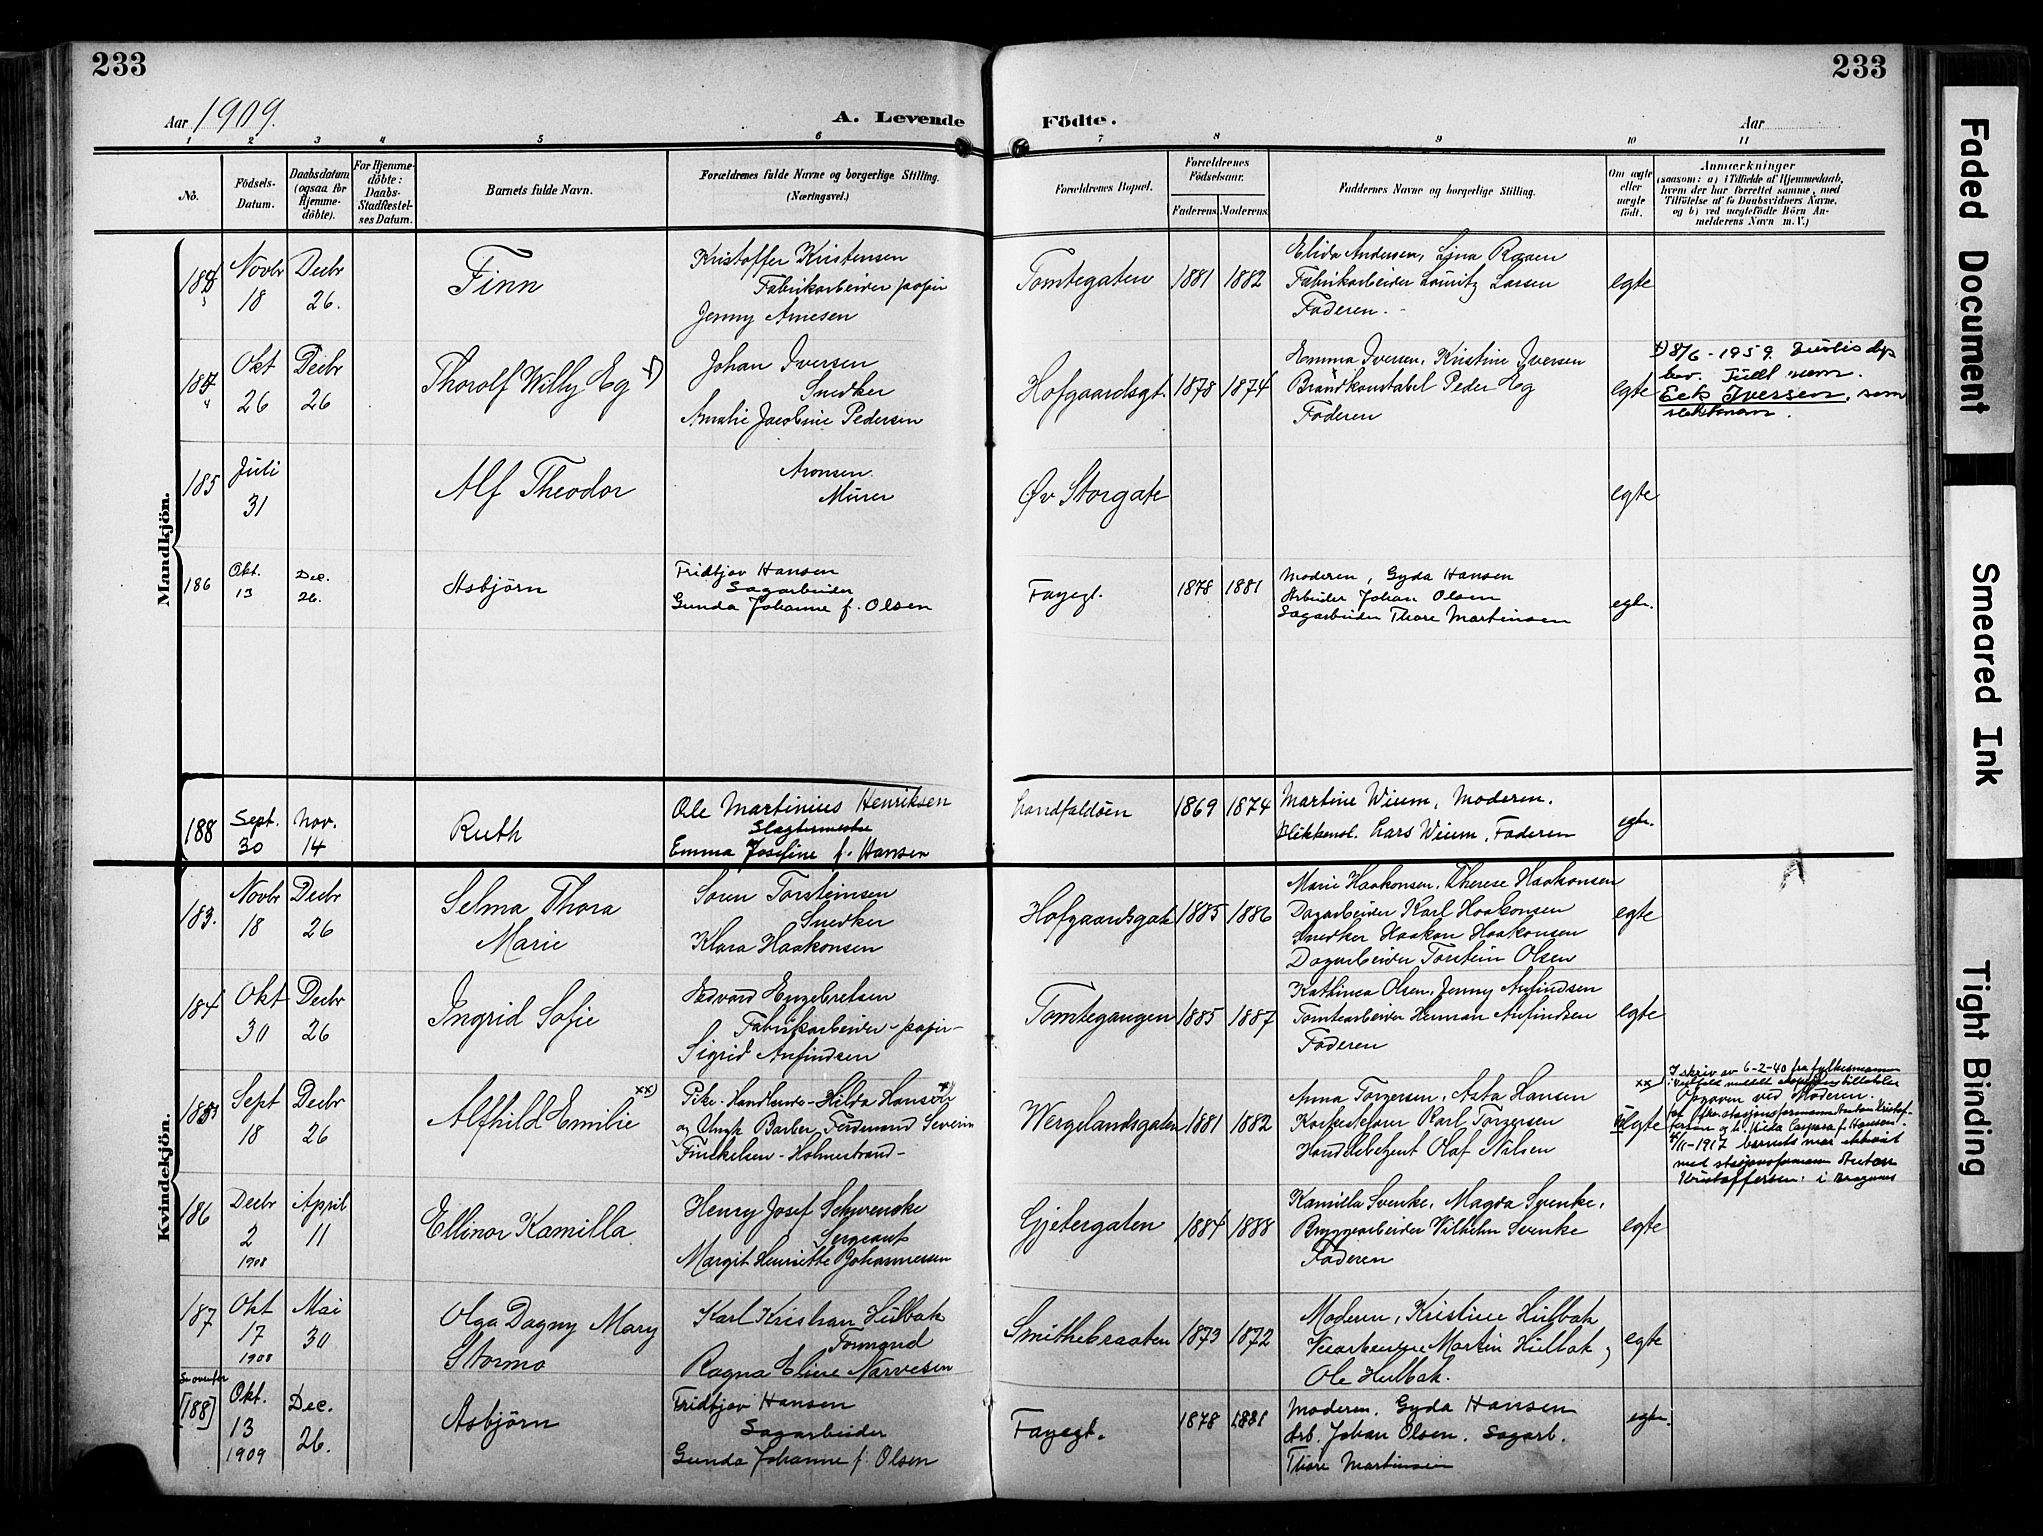 233
233
Aar 1909.
A. Levende
Födte.
Aar
1 2 3 4 5 6 7 8 9 10 11
No.
Födsels-Datum.
Daabsdatum (ogsaa for Hjemme-döbte).
For Hjemme-döbte: Daabs-Stadfæstel-ses Datum.
Barnets fulde Navn.
Forældrenes fulde Navne og borgerlige Stilling.
(Næringsvei.)
Forældrenes Bopæl.
Forældrenes Födselsaar.
Faderens. Moderens.
Faddernes Navne og borgerlige Stilling.
Om ægte eller uægte födt.
Anmærkninger
(saasom: a) i Tilfælde af Hjemmedaab,
hvem der har forrettet samme, med
Tilföielse af to Daabsvidners Navne,
og b) ved uægtefödte Börn An-
melderens Navn m. V.)
Mandkjön.
Novbr 18
Decbr 26.
Finn
Kristoffer Kristensen
Fabrikarbeider papir
Jenny Arnesen
Tomtegaten
1881 1882
Elida Andersen, Lina Raaen
Fabrikarbeider Lauritz Larsen
Faderen.
egte
Okt 26
Decbr 26
Thorolf Willy Eg
Johan Iversen
Snedker
Amalie Jacobine Pedersen
Hofgaardsgt.
1878 1874
Emma Iversen, Kristine Iversen
Brandkonstabel Peder Eg
Faderen
egte
8/6 - 1959. Justis dep
bev. Tillt nam.
Eek Iversen, som
slektsnavn.
185
Juli 31
Alf Theodor
Aronsen
Murer
Øv Storgate
egte
186
Okt. 13
Dec. 26.
Asbjörn
Fridtjov Hansen
Sagarbeider
Gunda Johanne f. Olsen
Fayegt.
1878 1881
Moderen, Gyda Hansen
Arbeider Johan Olsen
Sagarbeider Thore Martinsen
egte.
188
Sept. 30
Nov. 14
Ruth
Ole Martinius Henriksen
Slagtermester
Emma Josefine f. Hansen
Landfaldöen
1869 1874
Martine Wium, Moderen.
Blikkensl. Lars Wium, Faderen
egte.
Kvindekjön.
183.
Novbr 18
Decbr 26
Selma Thora
Marie
Soren Torsteinsen
Snedker
Klara Haakonsen
Hofgaardsgate
1885 1886
Marie Haakonsen, Therese Haakonsen
Dagarbeider Karl Haakonsen
Snedker Haakon Haakonsen
Dagarbeider Torstein Olsen
egte
184
Okt 30
Decbr 26
Ingrid Sofie
Edvard Engebretsen
Fabrikarbeider - papir -
Sigrid Anfindsen
Tomtegangen
1885 1887
Kathinca Olsen, Jenny Anfindsen
Tomtearbeider Herman Anfindsen
Faderen
egte
185
Sept 18
Decbr 26
Alfhild Emilie xx)
Pike - Handlende - Hilda Hansen x)
og Ungk Barber Ferdinand Severin
Finckelsen - Holmestrand -
Wergelandsgaten
1881 1882
Anna Torgersen, Asta Hansen
Korkeskjærer Karl Torgersen
Handelsbetjent Olaf Nilsen
egte
xx) I skriv av 6-2-40 fra fylkesmannen
i Vestfold meddelt
Opgaven ved Moderen.
11-1917 barnets mor ektviet
med stasjonsformann Anton
Kristoffersen. i Bragernes
186
Decbr 2 1908
April 11
Ellinor Kamilla
Henry Josef Schwenske
Sergeant
Margit Henriette Johannesen
Gjetergaten
1884 1888
Kamilla Svenke, Magda Svenke,
Bryggearbeider Vilhelm Svenke
Faderen
egte
187
Okt 17 1908
Mai 30
Olga Dagny Mary
Stormo
Karl Kristian Hulbak
Formand
Ragna Eline Narvesen
Smithebraaten
1873 1872
Moderen, Kristine Hulbak
Veiarbeider Martin Hulbak,
Ole Hulbak.
egte
Se ovenfor
[188]
Okt. 13 1909
Dec. 26.
Asbjörn
Fridtjov Hansen
Sagarbeider
Gunda Johanne f. Olsen
Fayegt.
1878 1881
Moderen, Gyda Hansen
Arb. Johan Olsen. Sagarb.
Thore Martinsen
egte.
Faded Document
Smeared Ink
Tight Binding